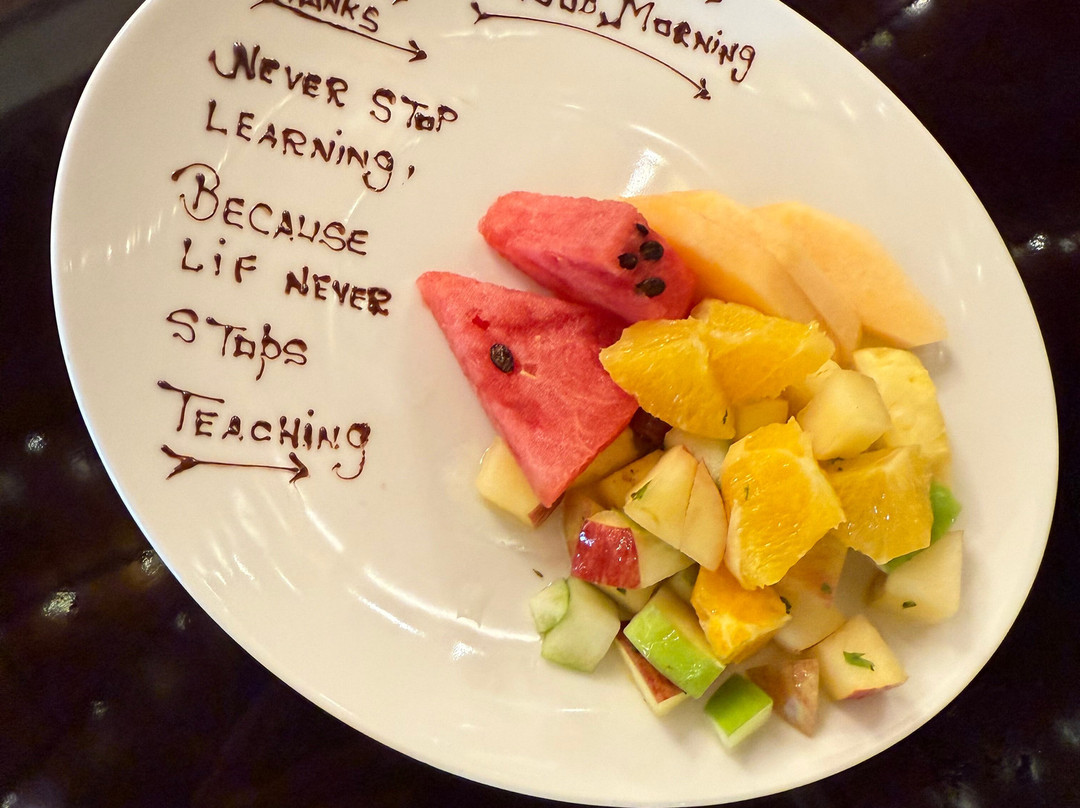 THANKS
GOOD MORNING
NEVER STOP
LEARNING,
BECAUSE
LIF NEVER
STOPS
TEACHING